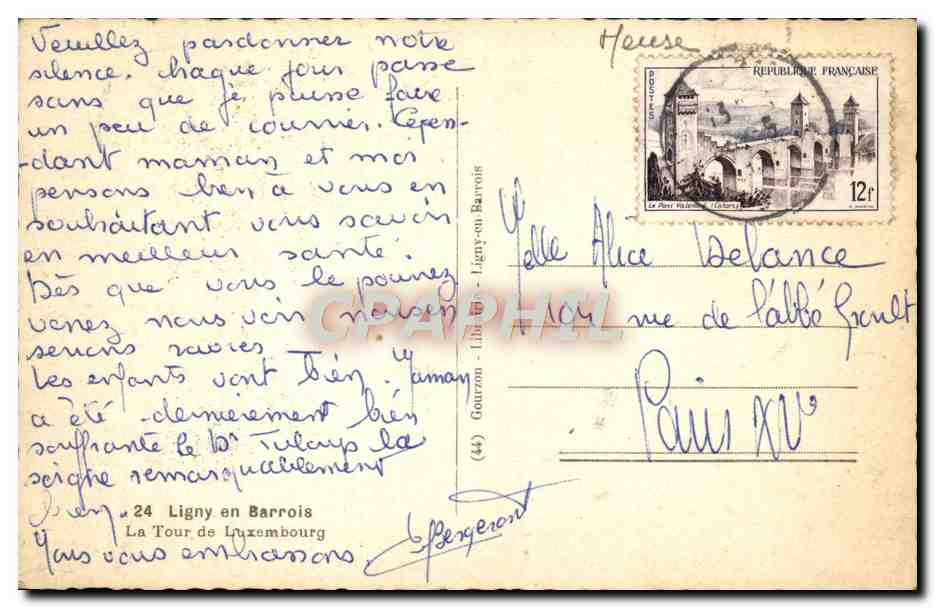 Veuillez pardonner notre
silence. Chaque jour passe
sans que je puisse faire
un peu de courrier. Cepen-
-dant maman et moi
pensons bien à vous en
souhaitant vous savoir
en meilleur santé.
Dès que vous le pourrez
venez nous voir nous en
serions ravies
Les enfants vont bien. Maman
a été dernièrement bien
souffrante le Dr Tuloup la
soigne remarquablement
bien.
24 Ligny en Barrois
La Tour de Luxembourg
Nous vous embrassons
Bergeront
(44) Gourzon - Librairie - Ligny-en-Barrois
CPAPHIL
Meuse
POSTES
REPUBLIQUE FRANÇAISE
Le Pont Valentré (Cahors)
12f
Melle Alice Delance
104 rue de l'abbé Groult
Paris XVe